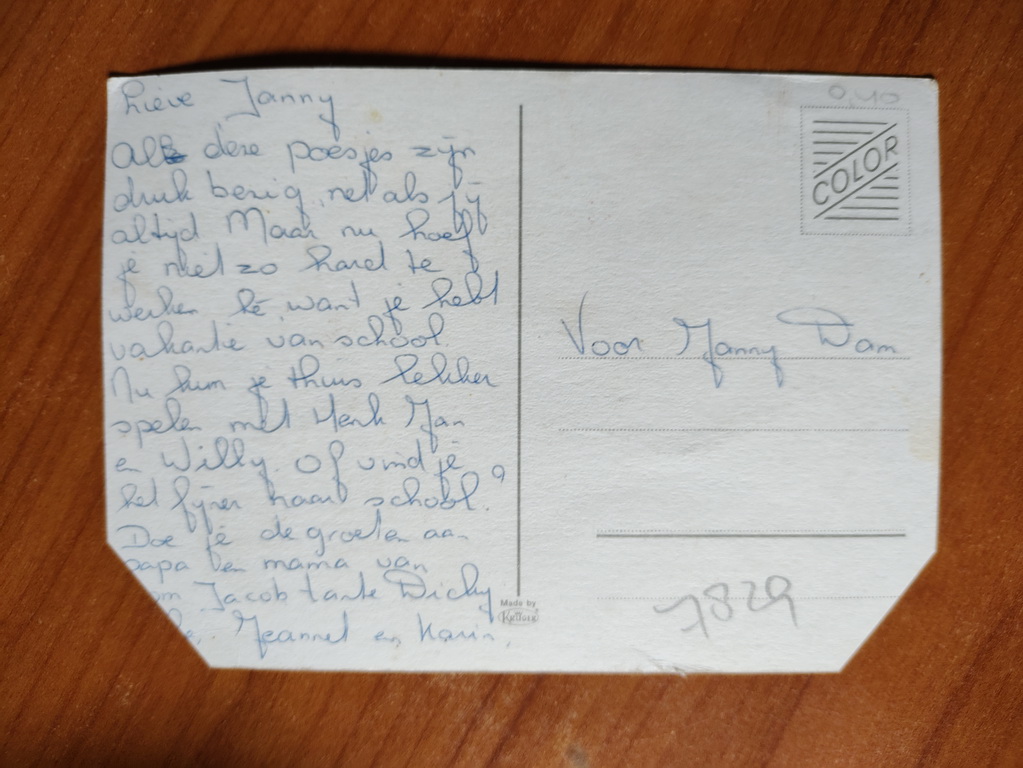 Lieve Janny
Als deze poesjes zijn
druk bezig net als jij
altijd Maar nu hoef
je niet zo hard te
werken hè want je hebt
vakantie van school.
Nu kun je thuis lekker
spelen met Henk Jan
en Willy. Of vind je
het fijner naar school?
Doe je de groeten aan
papa en mama van
om Jacob tante Dicky
Jeannet en Karin.
0,40
COLOR
Voor Janny Dam
7829
Made by